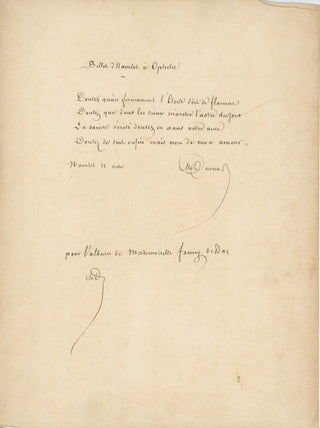 Billet d'Hamlet à Ophélie
Doutez qu'au firmament l'étoile soit de flamme
Doutez que dans les cieux marche l'astre du jour
La sainte vérité doutez en dans votre âme
Doutez de tout enfin mais non de mon amour.
Hamlet II acte
Alex Dumas
pour l'album de Mademoiselle fanny de
AD